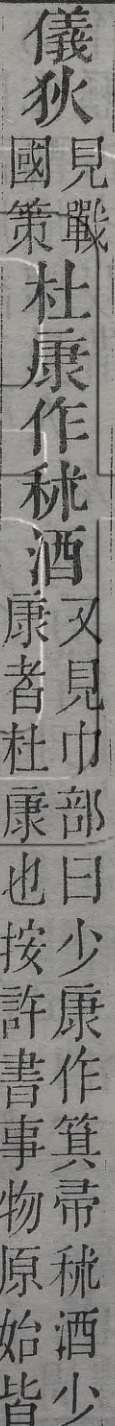 儀狄
見戰
國策
杜康作秫酒
又見巾部曰少康作箕帚秫酒少
康者杜康也按許書事物原始皆